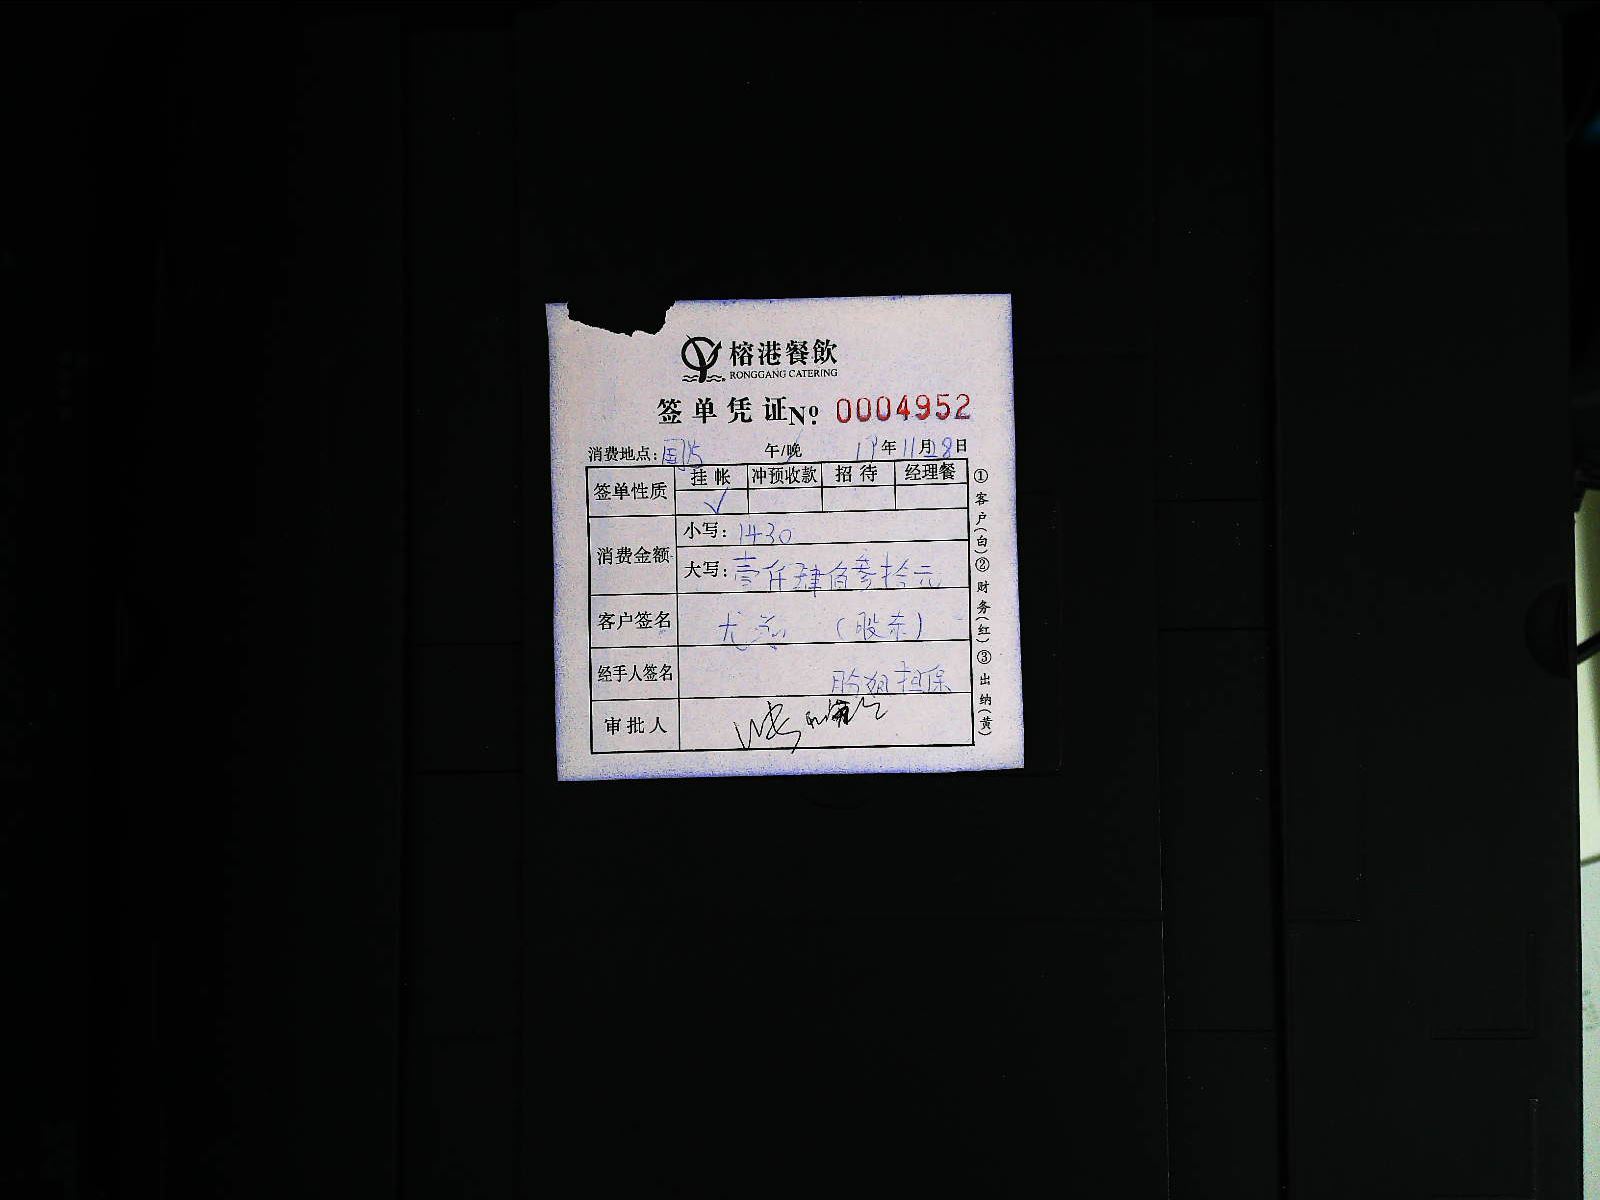 榕港餐飲
RONGGANG CATERING
签单凭证 No: 0004952
消费地点: 午/晚 19年11月28日
签单性质 挂帐 冲预收款 招待 经理餐
✓
消费金额 小写: 1430
大写: 壹仟肆佰叁拾元
客户签名 尤 (股东)
经手人签名 担保
审批人
①客户(白)②财务(红)③出纳(黄)